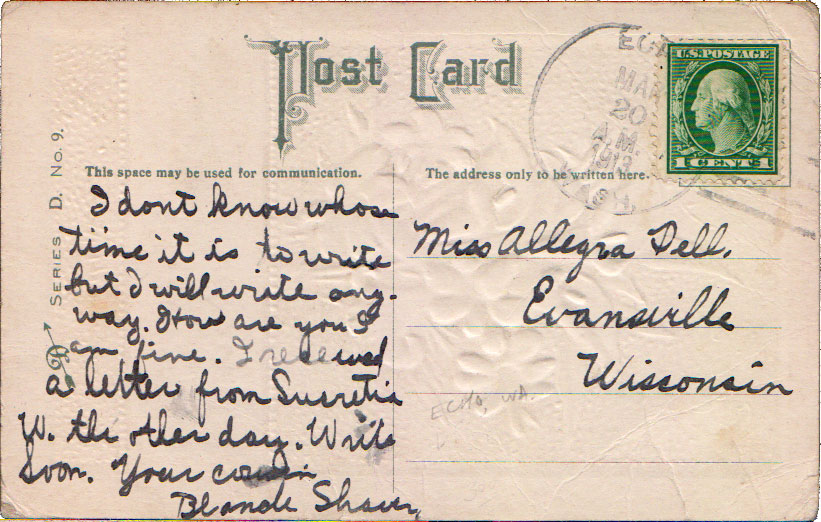 Post Card
ECHO
MAR
20
A.M.
1912
WASH.
U.S. POSTAGE
1 CENT 1
SERIES D. No. 9.
This space may be used for communication.
The address only to be written here.
I dont know whose
time it is to write
but I will write any-
way. How are you I
am fine. I received
a letter from Lucretia
W. the other day. Write
Soon. Your cousin
Blande Shaver
Miss Allegra Dell.
Evansville
Wisconsin
ECHO, WA.